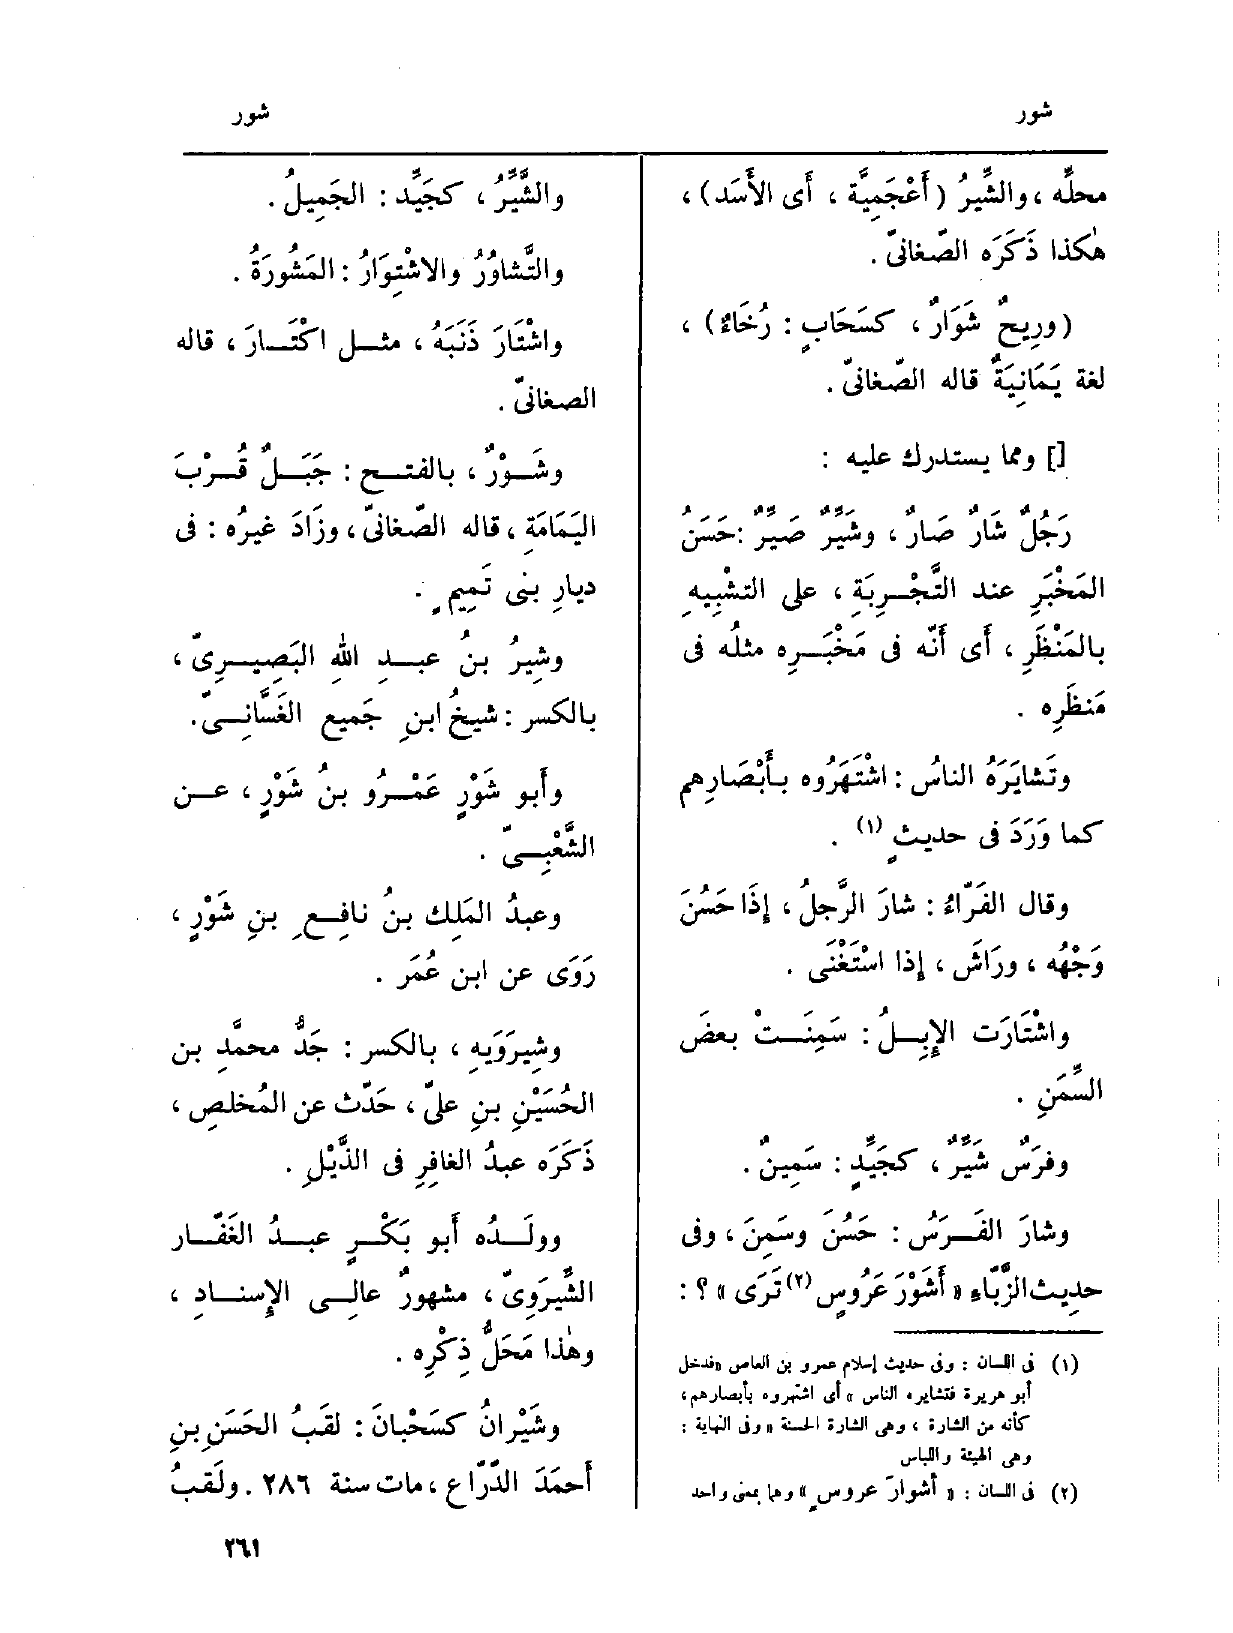 شور
شور
محلّه ، والشِّيرُ ( أَعْجَمِيَّة ، أَى الأَسَد) ،
هٰكذا ذَكَرَه الصّغانىّ .
(ورِيحٌ شَوَارٌ ، كسَحَابٍ : رُخَاءٌ) ،
لغة يَمَانِيَةٌ قاله الصّغانىّ .
[] ومما يستدرك عليه :
رَجُلٌ شَارٌ صَارٌ ، وشَيِّرٌ صَيِّرٌ : حَسَنُ
المَخْبَرِ عند التَّجْرِبَة ، على التشْبِيهِ
بالمَنْظَرِ ، أَى أَنّه فى مَخْبَرِه مثلُه فى
مَنظَرِه .
وتَشايَرَهُ الناسُ : اشْتَهَرُوه بأَبْصَارِهم
كما وَرَدَ فى حديثٍ (١) .
وقال الفَرّاءُ : شارَ الرَّجلُ ، إِذَا حَسُنَ
وَجْهُه ، ورَاشَ ، إذا اسْتَغْنَى .
واشْتَارَت الإِبِلُ : سَمِنَتْ بعضَ
السِّمَنِ .
وفرَسٌ شَيِّرٌ ، كجَيِّدٍ : سَمِينٌ .
وشارَ الفَرَسُ : حَسُنَ وسَمِنَ ، وفى
حديث الزَّبّاءِ « أَشَوْرَ عَرُوسٍ (٢) تَرَى » ؟ :
(١) فى اللسان : وفى حديث إسلام عمرو بن العاص «فدخل
أبو هريرة فتشايره الناس » أى اشتهروه بأبصارهم،
كأنه من الشارة ، وهى الشارة الحسنة » وفى النهاية :
وهى الهيئة واللباس
(٢) فى اللسان : « أشوارَ عروسٍ » وهما بمعنى واحد
والشَّيِّرُ ، كجَيِّد : الجَمِيلُ .
والتَّشاوُرُ والاشْتِوَارُ : المَشُورَةُ .
واشْتَارَ ذَنَبَهُ ، مثل اكْتَارَ ، قاله
الصغانىّ .
وشَوْرٌ ، بالفتح : جَبَلٌ قُرْبَ
اليَمَامَةِ ، قاله الصّغانىّ ، وزَادَ غيرُه : فى
ديارِ بنى تَمِيمٍ .
وشِيرُ بنُ عبدِ اللهِ البَصِيرِىّ ،
بالكسر : شيخُ ابنِ جَميعٍ الغَسَّانِىّ .
وأَبو شَوْرٍ عَمْرُو بنُ شَوْرٍ ، عن
الشَّعْبِىّ .
وعبدُ المَلِك بنُ نافِعِ بنِ شَوْرٍ ،
رَوَى عن ابن عُمَر .
وشِيرَوَيه ، بالكسر : جَدُّ محمَّدِ بن
الحُسَيْنِ بنِ علىّ ، حَدّث عن المُخلصِ ،
ذَكَرَه عبدُ الغافِرِ فى الذَّيْلِ .
وولَدُه أَبو بَكْرٍ عبدُ الغَفّار
الشِّيرَوِىّ ، مشهورٌ عالِى الإِسنادِ ،
وهٰذا مَحَلُّ ذِكْرِه .
وشَيْرانُ كسَحْبانَ : لقَبُ الحَسَنِ بنِ
أَحمَدَ الذَّرّاعِ ، مات سنة ٢٨٦ . ولَقبُ
٢٦١